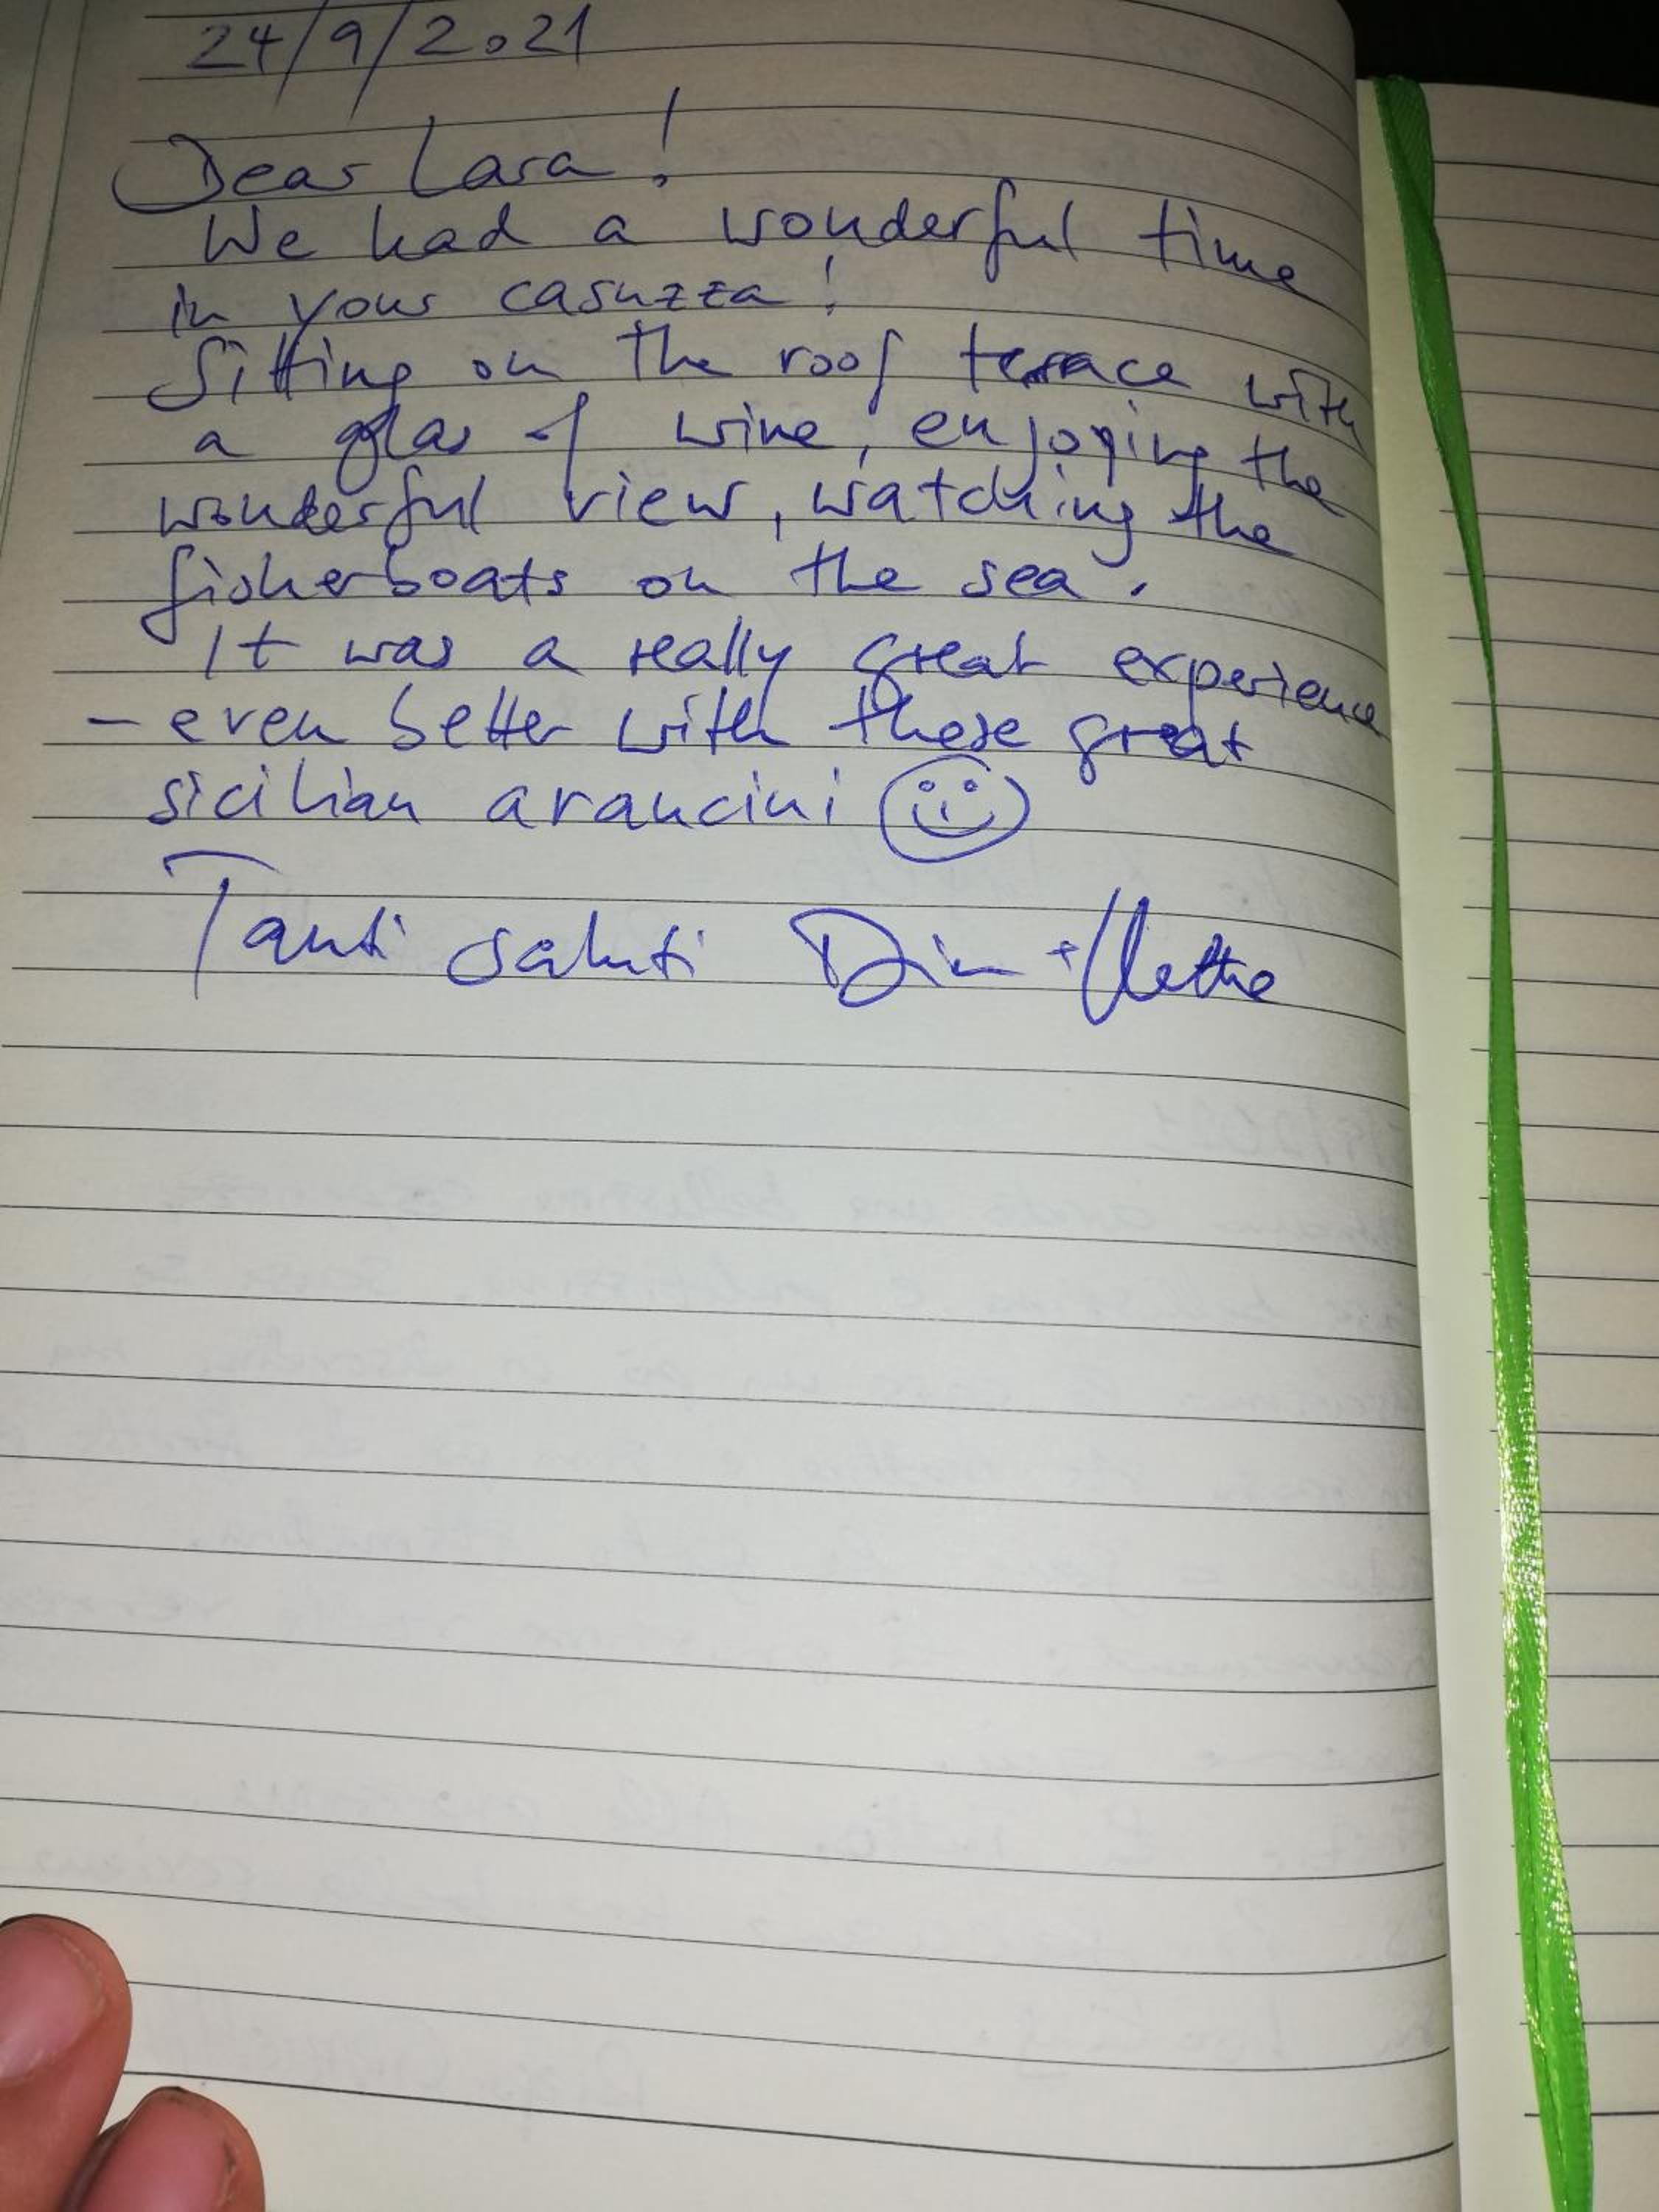 24/9/2021
Dear Lara!
We had a wonderful time
in your casuzza!
Sitting on the roof terrace with
a glas of wine, enjoying the
wonderful view, watching the
fisherboats on the sea.
It was a really great experience
- even better with these great
sicilian arancini
Tanti saluti